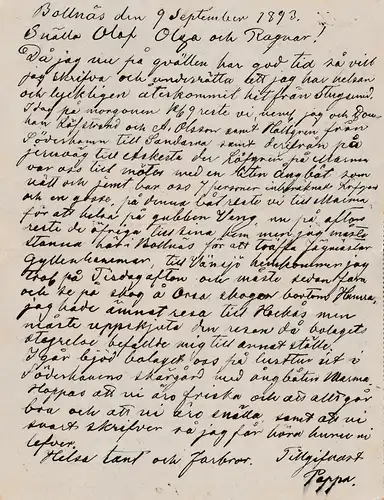 Bollnäs den 9 September 1893.
Snälla Olof Olga och Ragnar!
Då jag nu på qvällen har god tid så vill
jag skrifva och underrätta att jag har helsan
och lyckligen återkommit hit från Ljugsund.
I dag på morgonen kl 9 reste vi neml jag och
han och A. Olsson samt Hallgren från
Söderhamn till Sandarna samt derifrån på
jernväg till der Löfgren på Marma
var oss till mötes med en liten ångbåt som
nätt och jemt bar oss 7 personer inberäknat Löfgren
och en gosse, på denna båt reste vi till Marma
för att helsa på gubben nu på afton
reste de öfriga till sina hem men jag måste
stanna här i Bollnäs för att träffa Jägmästar
Gyllenhammar, till Vänsjö hemkommer jag
trol på Tisdag afton och måste sedan fara
och se på skog å Orsa skogen bortom Hamra,
jag hade ämnat resa till men
måste uppskjuta den resan då bolaget
befallde mig till annat ställe.
I går bjöd bolaget oss på lusttur ut i
Söderhamns skärgård med ångbåten Marma
Hoppas att ni äro friska och att allt går
bra och att ni äro snälla samt att ni
snart skrifver så jag får höra huru ni
lefver.
Helsa tant och Farbror. Tillgifnast
Pappa.